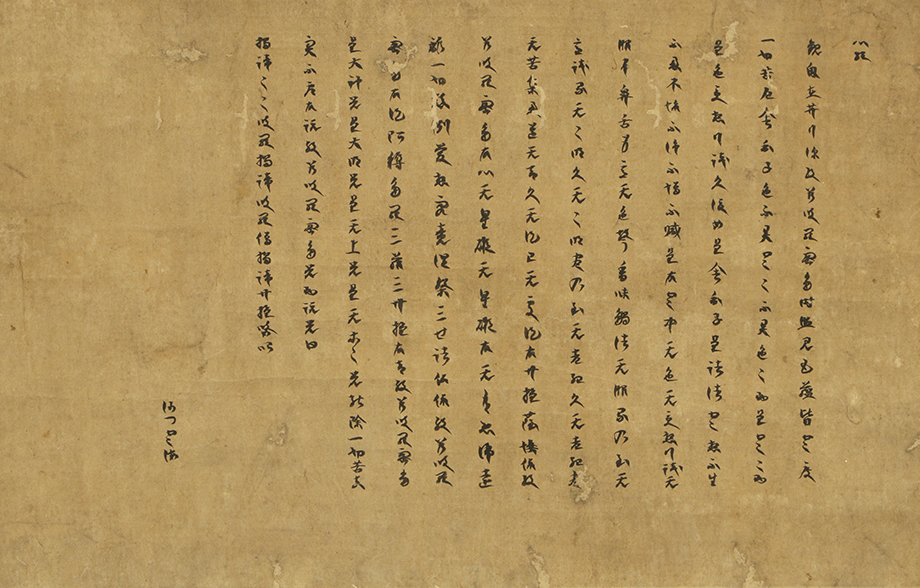 心経
観自在菩薩行深般若波羅蜜多時照見五蘊皆空度
一切苦厄舎利子色不異空々不異色々即是空々即
是色受想行識亦復如是舎利子是諸法空相不生
不滅不垢不浄不増不減是故空中无色无受想行識无
眼耳鼻舌身意无色聲香味觸法无眼界乃至无
意識界无々明亦无々明盡乃至无老死亦无老死盡
无苦集滅道无智亦无得以无所得故菩提薩埵依般
若波羅蜜多故心无罣礙无罣礙故无有恐怖遠
離一切顛倒夢想究竟涅槃三世諸仏依般若波羅
蜜多故得阿耨多羅三藐三菩提故知般若波羅蜜多
是大神咒是大明咒是无上咒是无等々咒能除一切苦真
實不虚故説般若波羅蜜多咒即説咒曰
掲諦々々波羅掲諦波羅僧掲諦菩提
沙門空海